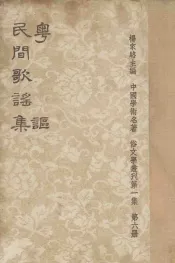 楊家駱主編 中國學術名著 俗文學叢刊第一集 第六冊
粵謳
民間歌謠集